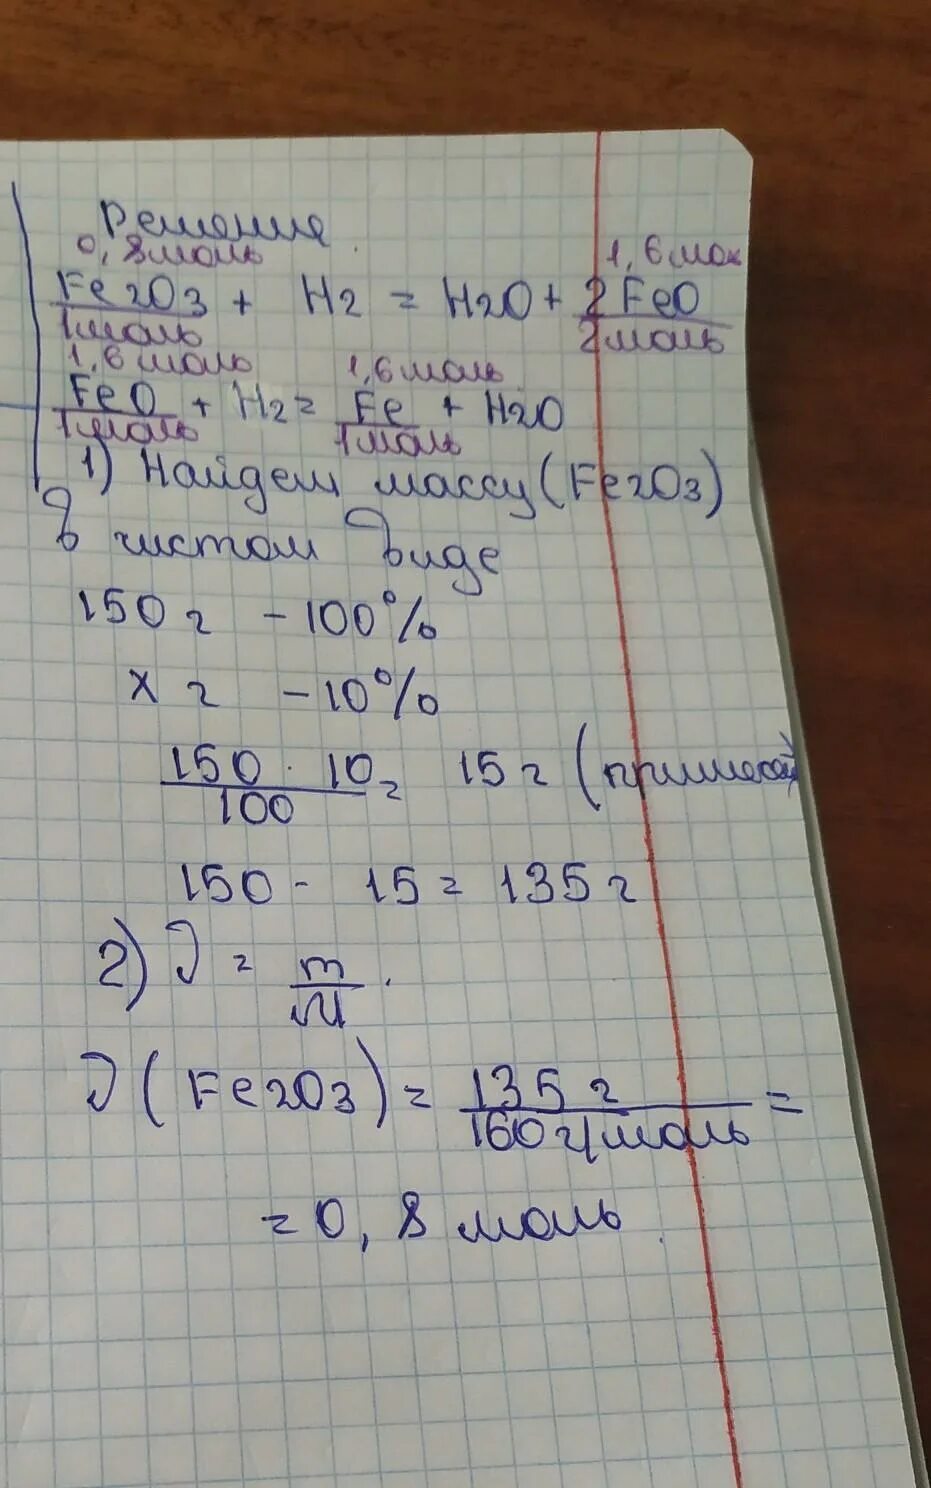 Решение
0,8моль 1,6мол
Fe2O3 + H2 = H2O + 2FeO
1моль 2моль
1,6 моль 1,6моль
FeO + H2 = Fe + H2O
1моль 1моль
1) Найдем массу (Fe2O3)
в чистом виде
150 г - 100%
х г - 10%
150 · 10 = 15 г (примесей)
100
150 - 15 = 135 г
2) ν = m
M
ν (Fe2O3) = 135 г =
160 г/моль
= 0,8 моль